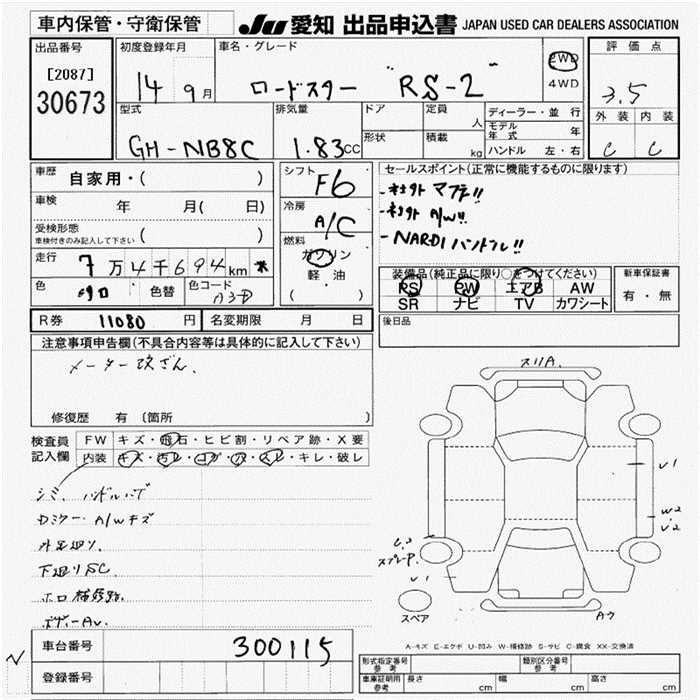 車内保管・守衛保管
JU 愛知 出品申込書 JAPAN USED CAR DEALERS ASSOCIATION
出品番号
[2087]
30673
初度登録年月
14 9月
車名・グレード
ロードスター "RS-2"
2WD
4WD
評価点
3.5
外装 内装
C C
型式
GH-NB8C
排気量
1.83CC
ドア
形状
定員
人
積載
kg
ディーラー・並行
モデル年式 年
ハンドル 左・右
車歴
自家用・( )
車検 年 月( 日)
受検形態
車検付きのみ記入して下さい ( )
走行
7万4千694km *
色
色替
色コード
A3D
シフト
F6
冷房
A/C
燃料
ガソリン
軽油
( )
セールスポイント(正常に機能するものに限ります)
・ネオクト マフラー!!
・ネオクト A/W!!
・NARDIハンドル!!
装備品(純正品に限り○をつけてください)
PS PW エアB AW
SR ナビ TV カワシート
新車保証書
有・無
後日品
R券 11080円
名変期限 月 日
注意事項申告欄(不具合内容等は具体的に記入して下さい)
メーター改ざん.
修復歴 有 〔箇所 〕
検査員
記入欄
FW キズ・飛石・ヒビ割・リペア跡・X要
内装 キズ・汚レ・コゲ・穴・スレ・キレ・破レ
シミ、ハンドルハゲ
A/Wキズ
外足廻り.
下廻りSC.
ホロ補修跡.
ボディーAv
スリA.
V1
W2
V2
C2
スプレーP.
V1
スペア
Aウ
A-キズ E-エクボ U-凹み W-補修跡 S-サビ C-腐食 XX-交換済
車台番号
300115
登録番号
形式指定番号
参考
類別区分番号
参考
車庫証明用
参考
長さ cm
幅 cm
高さ cm